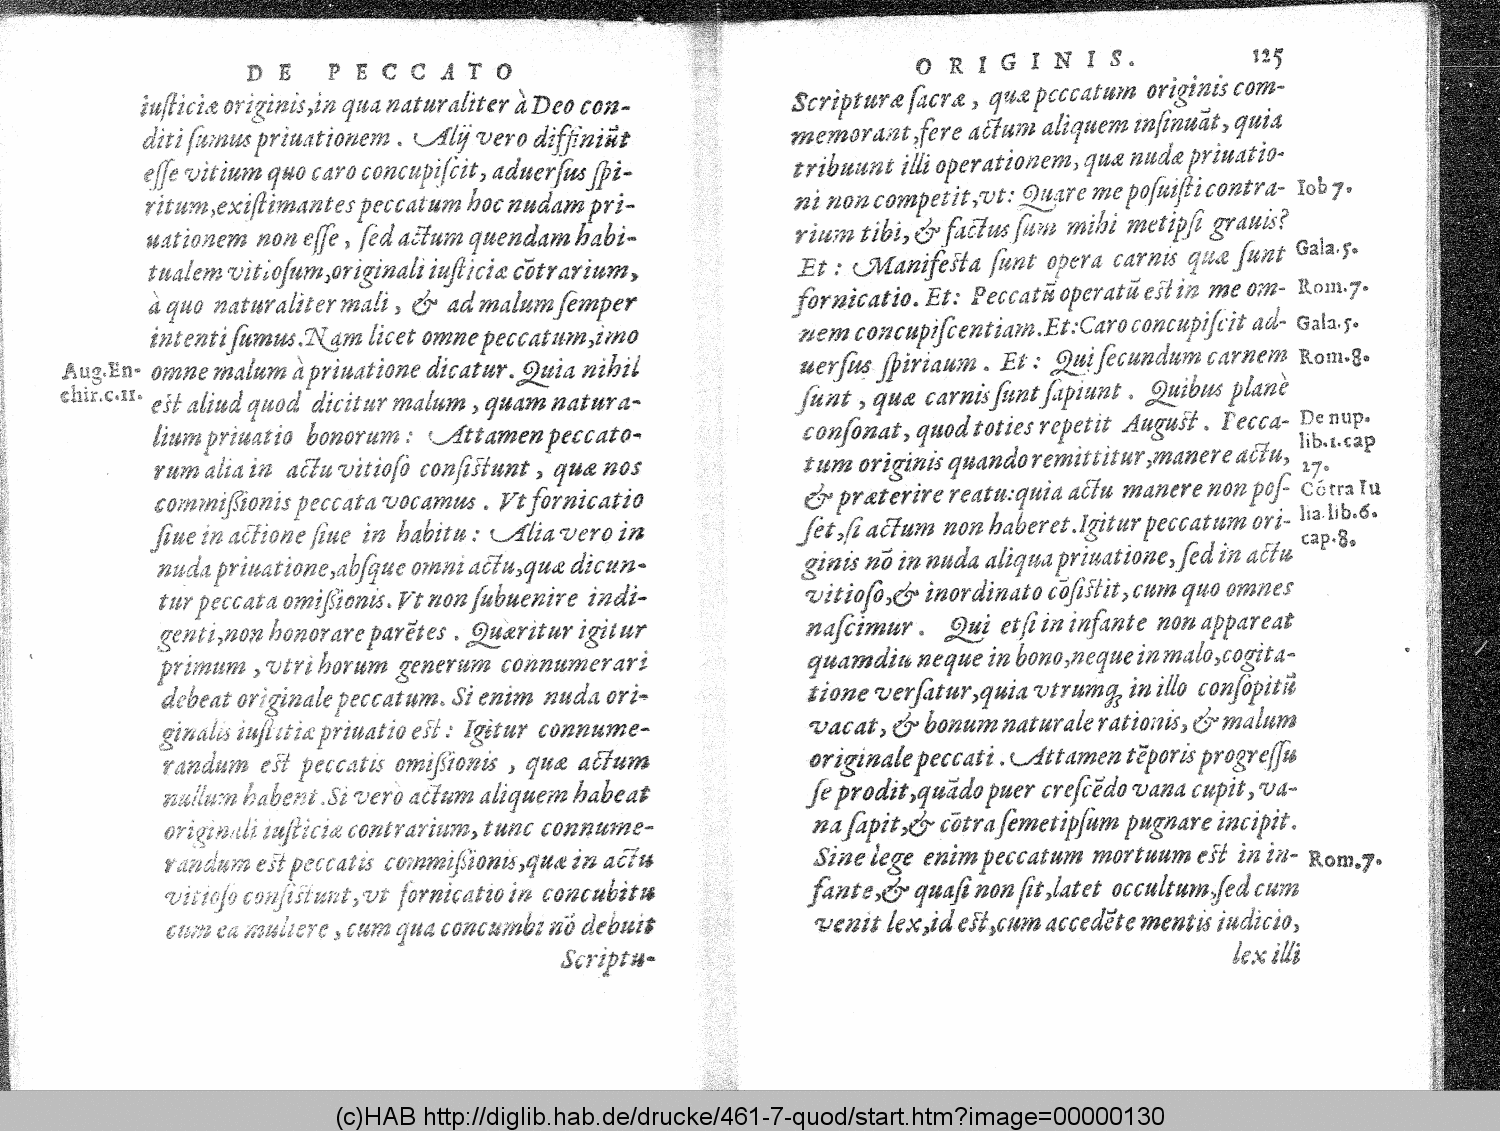 DE PECCATO
iuſticiæ originis,in qua naturaliter à Deo con-
diti ſumus priuationem. Alij vero diffiniūt
eſſe vitium quo caro concupiſcit, aduerſus ſpi-
ritum,exiſtimantes peccatum hoc nudam pri-
uationem non eſſe, ſed actum quendam habi-
tualem vitioſum,originali iuſticiæ cōtrarium,
à quo naturaliter mali, & ad malum ſemper
intenti ſumus. Nam licet omne peccatum,imo
omne malum à priuatione dicatur. Quia nihil
Aug.En-
chir.c.11.
eſt aliud quod dicitur malum, quam natura-
lium priuatio bonorum: Attamen peccato-
rum alia in actu vitioſo conſiſtunt, quæ nos
commiſſionis peccata vocamus. Vt fornicatio
ſiue in actione ſiue in habitu: Alia vero in
nuda priuatione,abſque omni actu,quæ dicun-
tur peccata omiſſionis. Vt non ſubuenire indi-
genti,non honorare parētes. Quæritur igitur
primum, vtri horum generum connumerari
debeat originale peccatum. Si enim nuda ori-
ginalis iuſtitiæ priuatio eſt: Igitur connume-
randum eſt peccatis omiſſionis, quæ actum
nullum habent. Si vero actum aliquem habeat
originali iuſticiæ contrarium, tunc connume-
randum eſt peccatis commiſſionis,quæ in actu
vitioſo conſiſtunt, vt fornicatio in concubitu
cum ea muliere, cum qua concumbi nō debuit
Scriptu-
ORIGINIS. 125
Scripturæ ſacræ, quæ pcccatum originis com-
memorant,fere actum aliquem inſinuāt, quia
tribuunt illi operationem, quæ nudæ priuatio-
ni non competit,vt: Quare me poſuiſti contra-
Iob 7.
rium tibi, & factus ſum mihi metipſi grauis?
Et: Manifeſta ſunt opera carnis quæ ſunt
Gala.5.
fornicatio. Et: Peccatū operatū eſt in me om-
Rom.7.
nem concupiſcentiam.Et:Caro concupiſcit ad-
Gala.5.
uerſus ſpiriaum. Et: Qui ſecundum carnem
Rom.8.
ſunt, quæ carnis ſunt ſapiunt. Quibus planè
conſonat, quod toties repetit Auguſt. Pecca-
De nup.
lib.1.cap
17.
tum originis quando remittitur,manere actu,
& præterire reatu:quia actu manere non poſ-
Cōtra Iu
lia.lib.6.
cap.8.
ſet,ſi actum non haberet.Igitur peccatum ori-
ginis nō in nuda aliqua priuatione, ſed in actu
vitioſo,& inordinato cōſiſtit, cum quo omnes
naſcimur. Qui etſi in infante non appareat
quamdiu neque in bono,neque in malo,cogita-
tione verſatur,quia vtrumq; in illo conſopitū
vacat, & bonum naturale rationis, & malum
originale peccati. Attamen tēporis progreſſu
ſe prodit,quādo puer creſcēdo vana cupit, va-
na ſapit,& cōtra ſemetipſum pugnare incipit.
Sine lege enim peccatum mortuum eſt in in-
Rom.7.
fante,& quaſi non ſit,latet occultum,ſed cum
venit lex,id eſt,cum accedēte mentis iudicio,
lex illi
(c)HAB http://diglib.hab.de/drucke/461-7-quod/start.htm?image=00000130